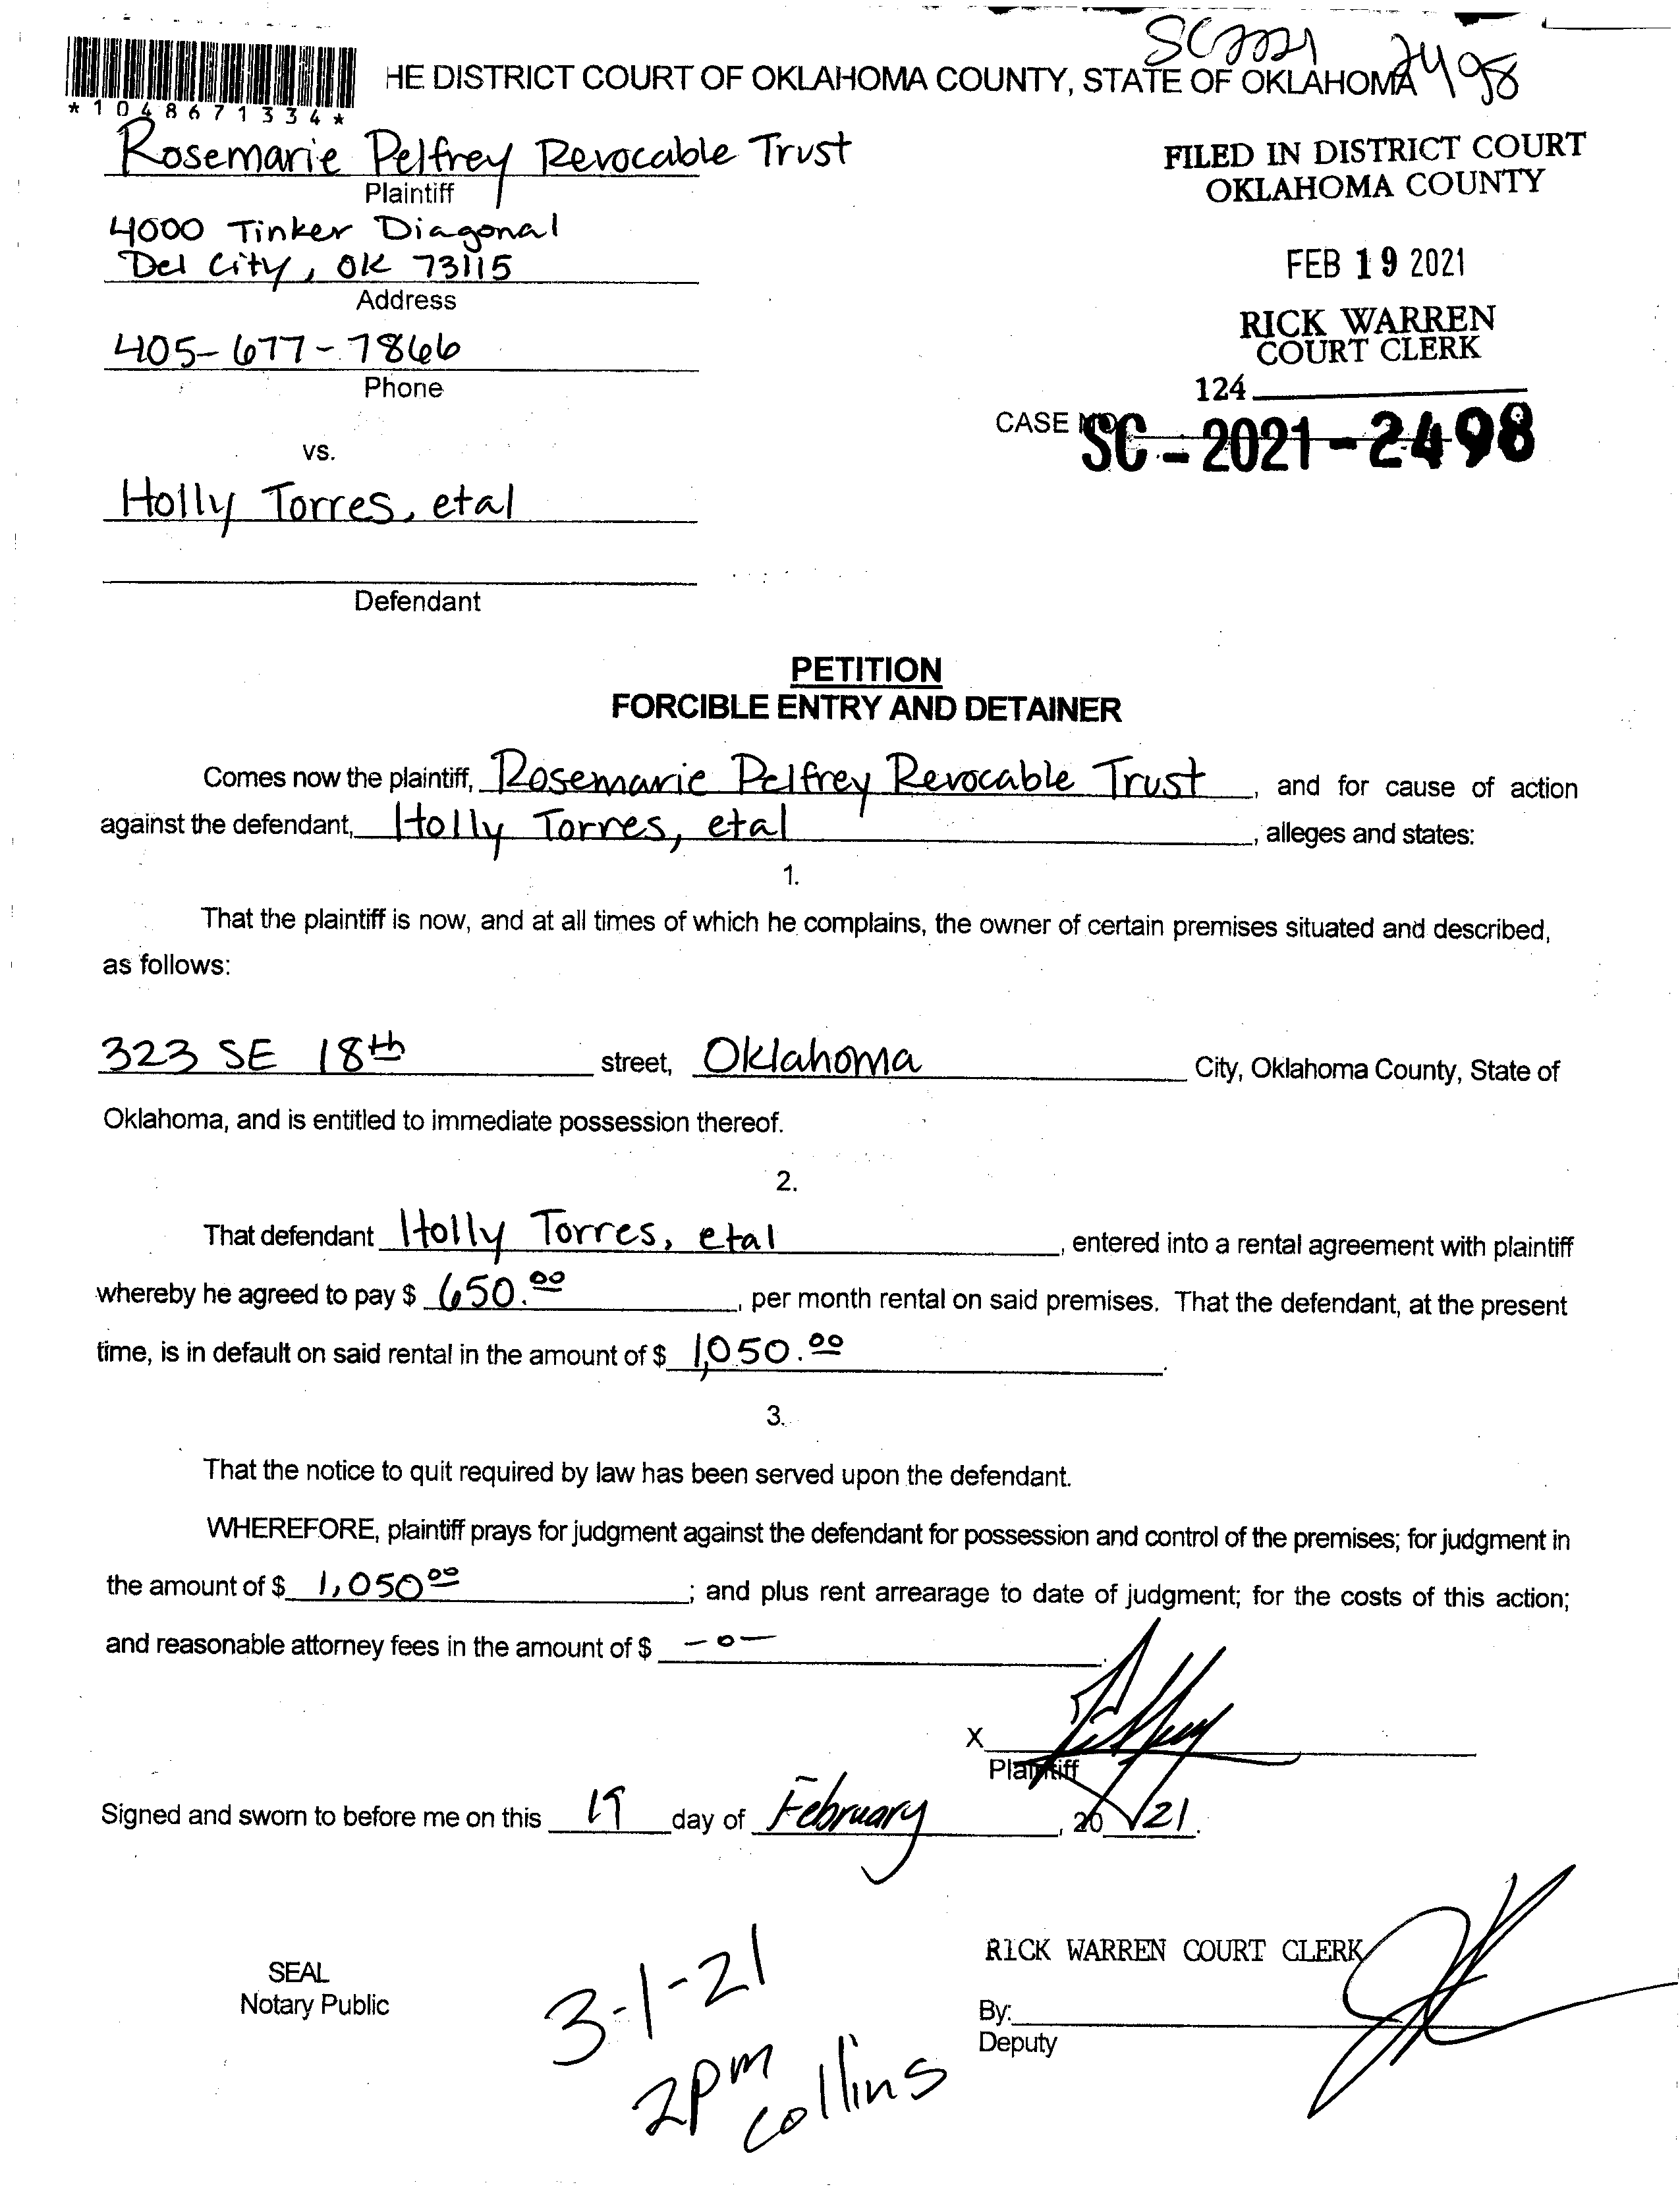 SC2021 2498
HE DISTRICT COURT OF OKLAHOMA COUNTY, STATE OF OKLAHOMA
*1048671334*
Rosemarie Pelfrey Revocable Trust
Plaintiff
4000 Tinker Diagonal
Del City, OK 73115
Address
405-677-7866
Phone
FILED IN DISTRICT COURT
OKLAHOMA COUNTY
FEB 19 2021
RICK WARREN
COURT CLERK
124
CASE NO. SC-2021-2498
vs.
Holly Torres, etal
Defendant
PETITION
FORCIBLE ENTRY AND DETAINER
Comes now the plaintiff, Rosemarie Pelfrey Revocable Trust, and for cause of action
against the defendant, Holly Torres, etal, alleges and states:
1.
That the plaintiff is now, and at all times of which he complains, the owner of certain premises situated and described,
as follows:
323 SE 18th street, Oklahoma City, Oklahoma County, State of
Oklahoma, and is entitled to immediate possession thereof.
2.
That defendant Holly Torres, etal, entered into a rental agreement with plaintiff
whereby he agreed to pay $ 650.00, per month rental on said premises. That the defendant, at the present
time, is in default on said rental in the amount of $ 1,050.00.
3.
That the notice to quit required by law has been served upon the defendant.
WHEREFORE, plaintiff prays for judgment against the defendant for possession and control of the premises; for judgment in
the amount of $ 1,050 00; and plus rent arrearage to date of judgment; for the costs of this action;
and reasonable attorney fees in the amount of $ -0-.
X
Plaintiff
Signed and sworn to before me on this 19 day of February, 20 21.
SEAL
Notary Public
3-1-21
2pm
Collins
RICK WARREN COURT CLERK
By:
Deputy